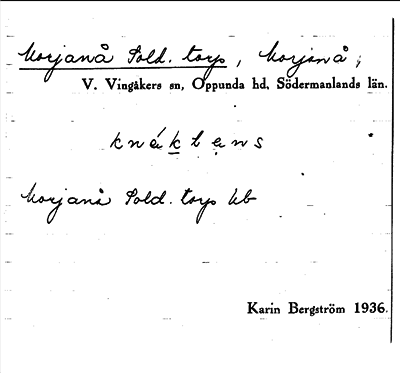 Morjanå Sold. torp, Morjanå,
V. Vingåkers sn, Oppunda hd, Södermanlands län.
knäktens
Morjanå Sold. torp kb
Karin Bergström 1936.